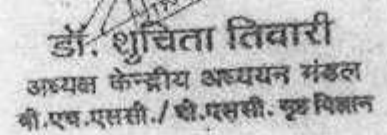 डॉ. शुचिता तिवारी
अध्यक्ष केन्द्रीय अध्ययन मंडल
बी.एच.एससी./ बी.एससी. गृह विज्ञान